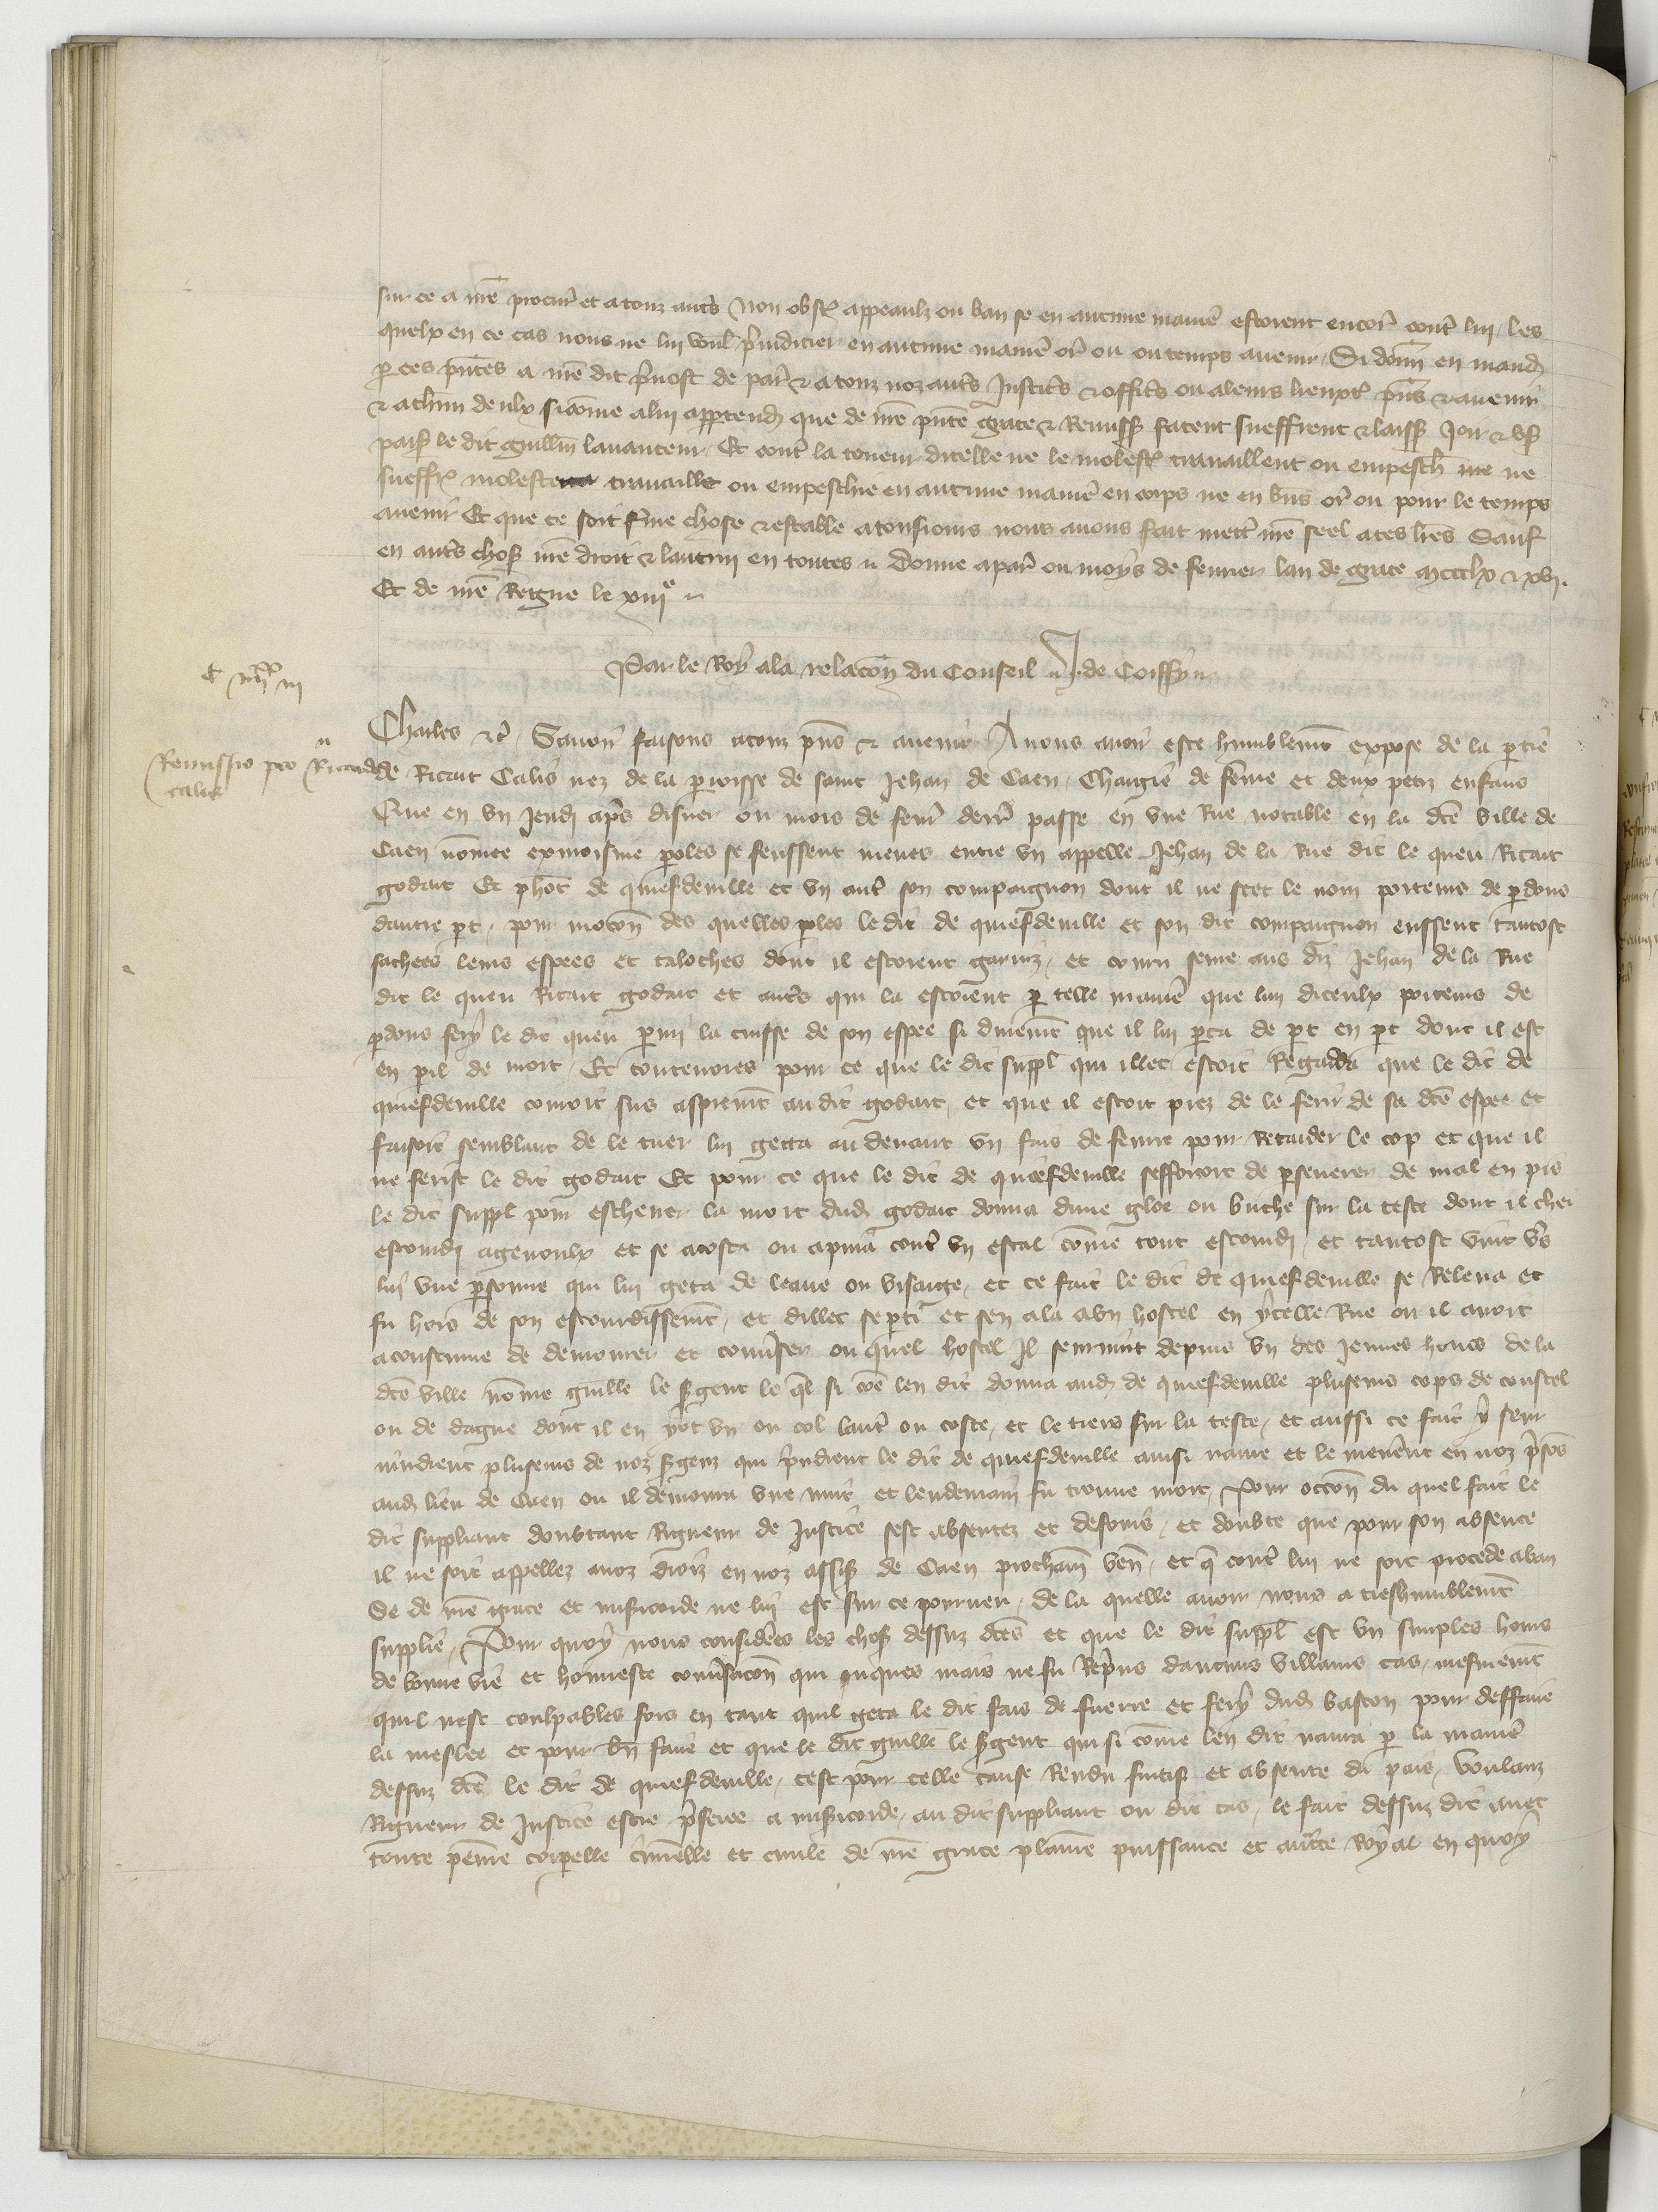 sur ce a nre procur et a touz autres non obst appeaulx ou ban se en aucune manie estoient encor contr lui, les
quelx en ce cas nous ne lui voul preiudicier en aucune manie or ou ou temps avenir Si donn en mand
p ces pntes a nre dit prevost de par & a touz noz autrs Justices & offices ou a leurs lieuxt pns & avenir
& a chun deulx si come a lui appartend que de nre pnte grace & Remiss facent sueffrent & laiss Joir & us
paisi le dit guillm lavanceur Et contr la teneur dicelle ne le molest travaillent ou empesch ne
sueffr moleste travaille ou empeschie en aucune manie en corps ne en biens or ou pour le temps
avenir Et que ce soit ferme chose & estable a tousiours nous avons fait mettr nre seel a ces lres Sauf
en autrs choses nre droit & lautruy en toutes Donne a par ou moys de fevrier lan de grace mccclx & xvj.
Et de nre Regne le xiiie
Par le Roy a la relacon du Conseil J. de Coiffy
Remissio pro Ricardo
calis
Charles etc Savoir faisons a touz pns & avenir A nous avoir este humblemt expose de la partie
de Ricart Calis nez de la parroisse de saint Jehan de Caen, Chargie de feme et deux petiz enfans
Que en un Jeudi aprs disner ou mois de fevr derr passe en une Rue notable en la dte ville de
Caen nomee exmoisine paroles se feussent meues entre un appelle Jehan de la Rue dit le queu Ricart
godart Et phot de quiefdeville et un autr son compaignon dont il ne scet le nom porteurs de pardons
dautre pt, pour mocon des quelles proles le dit de quiefdeville et son dit compaignon eussent tantost
sachees leurs espees et taloches dont il estoient garniz, et couru seure aus diz Jehan de la Rue
dit le queu Ricart godart et autrs qui la estoient par telle manie que lun diceulx porteurs de
pardons fery le dit queu parmi la cuisse de son espee si durement que il lui perca de pt en pt dont il est
en peril de mort, Et toutevoies pour ce que le dit suppl qui illec estoit Regarda que le dit de
quiefdeville couroit sus asprement au dit godart, et que il estoit prez de le ferir de sa dte espee et
faisoit semblant de le tuer lui getta au devant un fais de feurre pour Retarder le cop et que il
ne ferist le dit godart Et pour ce que le dit de quiefdeville sefforcoit de perseverer de mal en pis
le dit suppl pour eschever la mort dud godart donna dune gloe ou buche sur la teste dont il chei
estourdi a genoulx et se acosta ou apuia contr un estal come tout estourdi, et tantost vint vrs
lui une personne qui lui geta de leaue ou visaige, et ce fait le dit de quiefdeville se Releva et
fu hors de son estourdissemt, et dillec se parti et sen ala a un hostel en ycelle Rue ou il avoit
acoustume de demourer et converser ou quel hostel Il seurvint depuis un des Jeunes homes de la
dte ville nome guille le sergent le ql si coe len dit donna aud de quiefdeville plusieurs cops de coustel
ou de dague dont il en yot un ou col lautr ou coste, et le tiers sur la teste, et aussi ce fait y seur
vindrent plusieurs de noz sergenz qui prindrent le dit de quiefdeville ainsi navre et le menerent en noz prisons
aud lieu de Caen ou il demoura une nuit et lendemain fu trouve mort, Pour occon du quel fait le
dit suppliant doubtant Rigueur de Justice sest absentez et defouis, et doubte que pour son absence
il ne soit appellez a noz droiz en noz assises de Caen prochain ven, et q contr lui ne soit procede a ban
Se de nre grace et misericorde ne lui est sur ce pourveu, de la quelle avoir nous a treshumblemt
supplie, Pour quoy nous considerees les choses dessuz dtes et que le dit suppl est un simples homs
de bonne vie et honneste conversacon qui onques mais ne fu Repris dautrs villains cas, mesmemt
quil nest coulpables fors en tant quil geta le dit fais de fuerre et fery dud baston pour deffaire
la meslee et pour bn faire et que le dit guille le sergent qui si come len dit navra par la manie
dessuz dte le dit de quiefdeville, cest pour celle cause Rendu fuitif et absente du pais, Voulanz
Rigueur de Justice estre preferee a misericorde, au dit suppliant ou dit cas, le fait dessuz dit avec
toute peine corporelle criminelle et civile de nre grace plaine puissance et aucte Royal en quoy